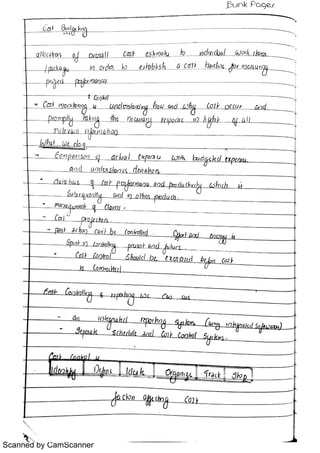 Bunk Pages
Cost Budgeting
allocation of overall cost estimate to individual work items
/packages in order to establish a cost baseline for measuring
project performance
& Control
→ Cost monitoring is understanding how and why cost occur and
promptly taking the necessary response in light of all
relevant information
What we do,
→ Comparison of actual expense with budgeted expense
and understand deviations
Analysis of cost performance and productivity which is
Subsequently used in other products.
→ Management of Claims -
- Cost projections
→ past action can't be controlled. Effort and energy is
Spent in controlling present and future.
- Cost Control should be exercised before cost
is committed
Cost Controlling & reporting we can use
- an integrated reporting system (using integrated software)
- Separate schedule and Cost Control System.
Cost Control is
Identify Define Ideate Organise Track Stop
action affecting cost
Scanned by CamScanner